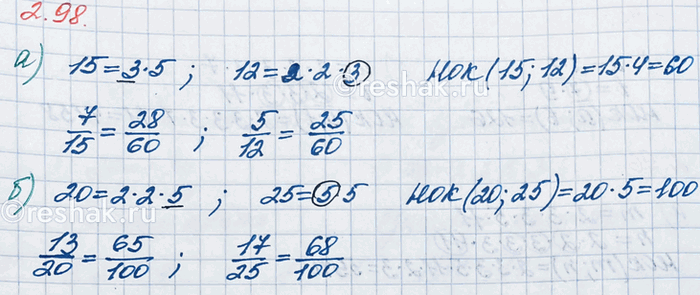 2.98.
а) 15=3·5 ; 12=2·2·3 НОК(15; 12)=15·4=60
7/15 = 28/60 ; 5/12 = 25/60
б) 20=2·2·5 ; 25=5·5 НОК(20; 25)=20·5=100
13/20 = 65/100 ; 17/25 = 68/100
reshak.ru